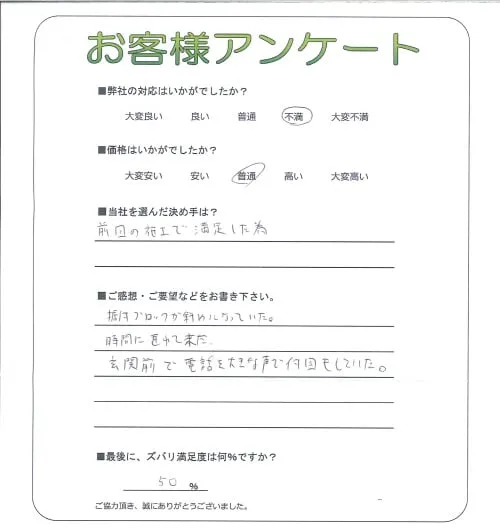 お客様アンケート
■弊社の対応はいかがでしたか？
大変良い 良い 普通 不満 大変不満
■価格はいかがでしたか？
大変安い 安い 普通 高い 大変高い
■当社を選んだ決め手は？
前回の施工で満足した為
■ご感想・ご要望などをお書き下さい。
ブロックが斜めになっていた。
時間に遅れて来た。
玄関前で電話を大きな声で何回もしていた。
■最後に、ズバリ満足度は何％ですか？
50 %
ご協力頂き、誠にありがとうございました。